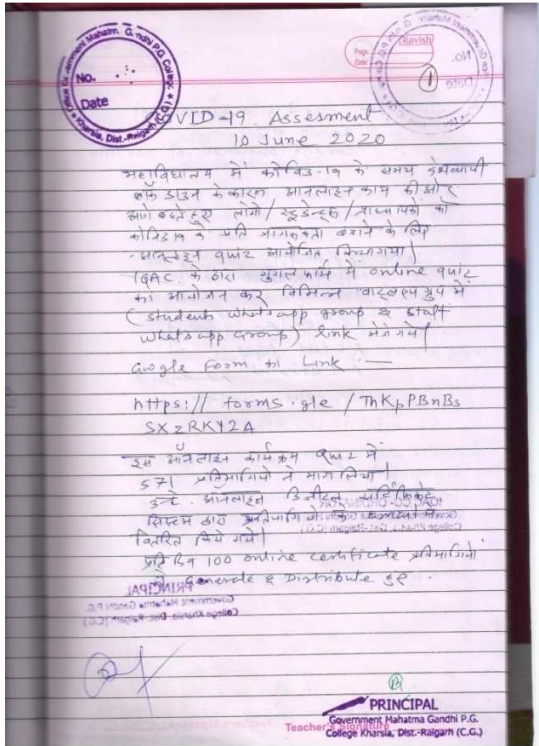 Office Government Mahatm. Gandhi P.G. College
Kharsia, Dist.-Raigarh (C.G.)
No.
Date
Ravish
Page
Date
1
COVID-19 Assesment
10 June 2020
महाविद्यालय में कोविड-19 के समय देशव्यापी
लॉक डाउन के कारण आनलाइन काम की ओर
आगे बढते हुए लोगो / स्टूडेन्ट्स / प्राध्यापको को
कोविड 19 के प्रति जागरूकता बढाने के लिए
आनलाइन quiz आयोजित किया गया।
IQAC के द्वारा गुगल फार्म में online quiz
का आयोजन कर विभिन्न वाट्सएप ग्रुप में
(students whatsapp group & staff
whatsapp Group) link भेजे गये।
Google Form का Link :—
https:// forms.gle / ThKpPBnBs
SXzRKY2A
इस ऑनलाइन कार्यक्रम quiz में
571 प्रतिभागियो ने भाग लिया।
उन्हे आनलाइन डिजीटल सर्टिफिकेट
सिस्टम द्वारा प्रतिभागियो
वितरित किये गये।
प्रति दिन 100 online certificate प्रतिभागियो
Generate & Distribute हुए.
PRINCIPAL
Government Mahatma Gandhi P.G.
College Kharsia, Dist.-Raigarh (C.G.)
Teacher's Signature